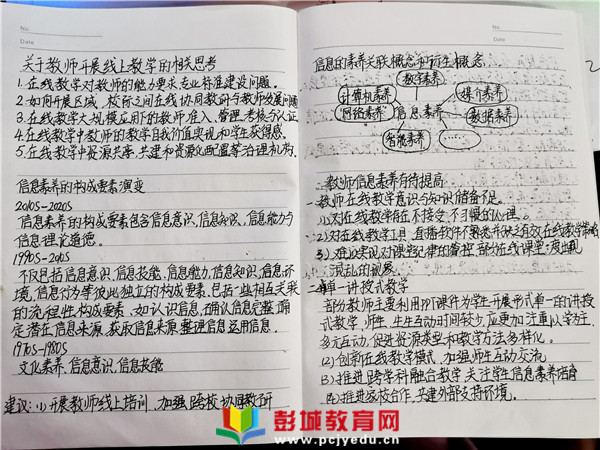 No.
Date
关于教师开展线上教学的相关思考
1.在线教学对教师的能力要求、专业标准建设问题。
2.如何开展区域、校际之间在线协同教研与教师发展问题
3.在线教学大规模应用下的教师准入、管理、考核与认证
4.在线教学中教师的教学自我价值实现和学生获得感。
5.在线教学中资源共享、共建和资源化配置等治理机构。
信息素养的构成要素演变
2010S-2020S
信息素养的构成要素包含信息意识、信息知识、信息能力与
信息理论道德。
1990S-2010S
不仅包括信息意识、信息技能、信息能力、信息知识、信息环
境、信息行为等彼此独立的构成要素,包括一些相互关联
的流程性构成要素,如认识信息、确认信息完整、确
定潜在信息来源、获取信息来源、整理信息、运用信息.
1970S-1980S
文化素养、信息意识、信息技能
建议: (1)开展教师线上培训,加强跨校协同教研
No.
Date
信息的素养关联概念和衍生概念
数字素养
计算机素养
媒介素养
网络素养
信息素养
数据素养
智能素养
……
教师信息素养有待提高
一教师在线教学意识与知识储备不足。
(1)对在线教学存在不接受、不习惯的心理。
2)对在线教学工具、直播软件不熟悉
3)难以实现对课堂纪律的管控,部分在线课堂
混乱的现象.
单一讲授式教学
部分教师主要利用PPT课件为学生开展形式单一的讲授
式教学,师生、生生互动时间较少,应更加注重以学为主,
多元互动,促进资源类型和教学方法多样化。
(2)创新在线教学模式,加强师生互动交流
(3)推进跨学科融合教学,关注学生信息素养培育
(4)推进家校合作,共建外部支持环境。
彭城教育网
www.pcjyedu.cn